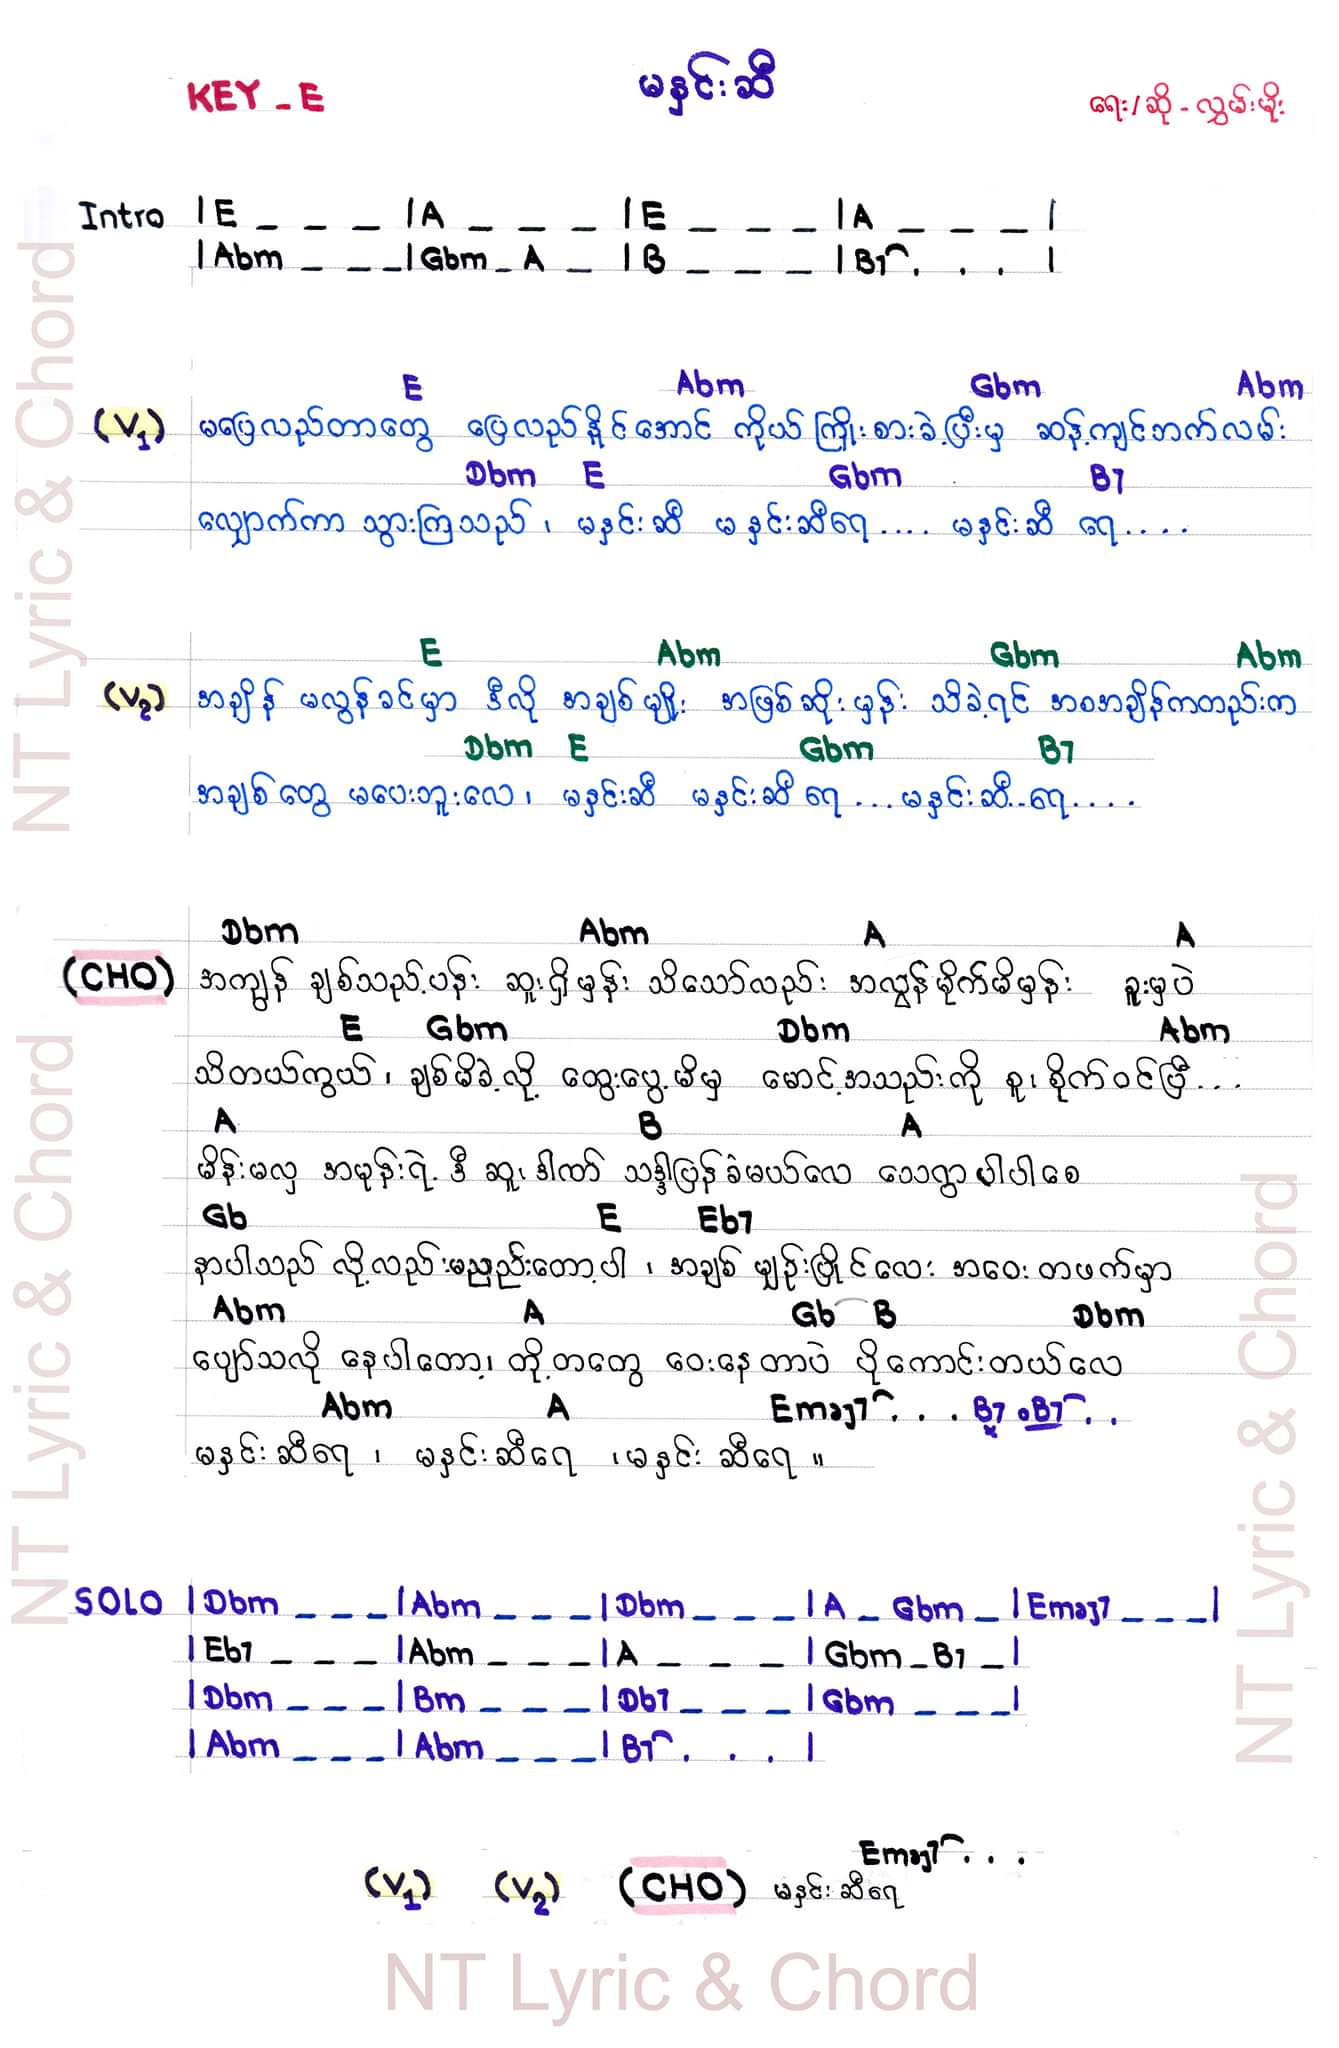 KEY - E
မနှင်းဆီ
ရေး/ဆို - လွှမ်းမိုး
Intro | E _ _ _ | A _ _ _ | E _ _ _ | A _ _ _ |
| Abm _ _ _ | Gbm _ A _ | B _ _ _ | B7 . . . |
E Abm Gbm Abm
(V1) မပြေလည်တာတွေ ပြေလည်နိုင်အောင် ကိုယ်ကြိုးစားခဲ့ပြီးမှ ဆန့်ကျင်ဘက်လမ်း
Dbm E Gbm B7
လျှောက်ကာ သွားကြသည် ၊ မနှင်းဆီ မနှင်းဆီရေ .... မနှင်းဆီ ရေ ....
E Abm Gbm Abm
(V2) အချိန် မလွန်ခင်မှာ ဒီလို အချစ်မျိုး အဖြစ်ဆိုးမှန်း သိခဲ့ရင် အစအချိန်ကတည်းက
Dbm E Gbm B7
အချစ်တွေ မပေးဘူးလေ ၊ မနှင်းဆီ မနှင်းဆီ ရေ ... မနှင်းဆီ..ရေ ....
Dbm Abm A A
(CHO) အကျွန် ချစ်သည့်ပန်း ဆူးရှိမှန်း သိသော်လည်း အလွန်မိုက်မိမှန်း ခူးမှပဲ
E Gbm Dbm Abm
သိတယ်ကွယ် ၊ ချစ်မိခဲ့လို့ ထွေးပွေ့မိမှ မောင့်အသည်းကို စူး စိုက်ဝင်ပြီ ...
A B A
မိန်းမလှ အမုန်းရဲ့ ဒီ ဆူးဒါဏ် သဒ္ဒါပြန်ခဲမယ်လေ သေကွာပါပါစေ
Gb E Eb7
နာပါသည် လို့လည်းမညည်းတော့ပါ ၊ အချစ် မျှဉ်းပြိုင်လေး အဝေးတဖက်မှာ
Abm A Gb B Dbm
ပျော်သလို နေပါတော့၊ တို့တတွေ ဝေးနေတာပဲ ပိုကောင်းတယ်လေ
Abm A Emaj7 . . . B7 B7 . .
မနှင်းဆီရေ ၊ မနှင်းဆီရေ ၊မနှင်း ဆီရေ ။
SOLO | Dbm _ _ _ | Abm _ _ _ | Dbm _ _ _ | A _ Gbm _ | Emaj7 _ _ _ |
| Eb7 _ _ _ | Abm _ _ _ | A _ _ _ | Gbm _ B7 _ |
| Dbm _ _ _ | Bm _ _ _ | Db7 _ _ _ | Gbm _ _ _ |
| Abm _ _ _ | Abm _ _ _ | B7 . . . |
Emaj7 . . .
(V1) (V2) (CHO) မနှင်းဆီရေ
NT Lyric & Chord
NT Lyric & Chord
NT Lyric & Chord
NT Lyric & Chord